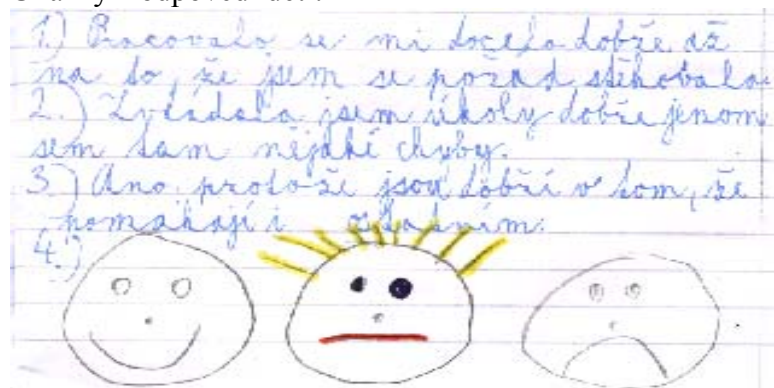 1.) Pracovalo se mi docela dobře, až
na to, že jsem se pořád stěhovala.
2.) Zvládala jsem úkoly dobře jenom
sem tam nějaké chyby.
3.) Ano, protože jsou dobří v tom, že
pomáhají i ostatním.
4.)